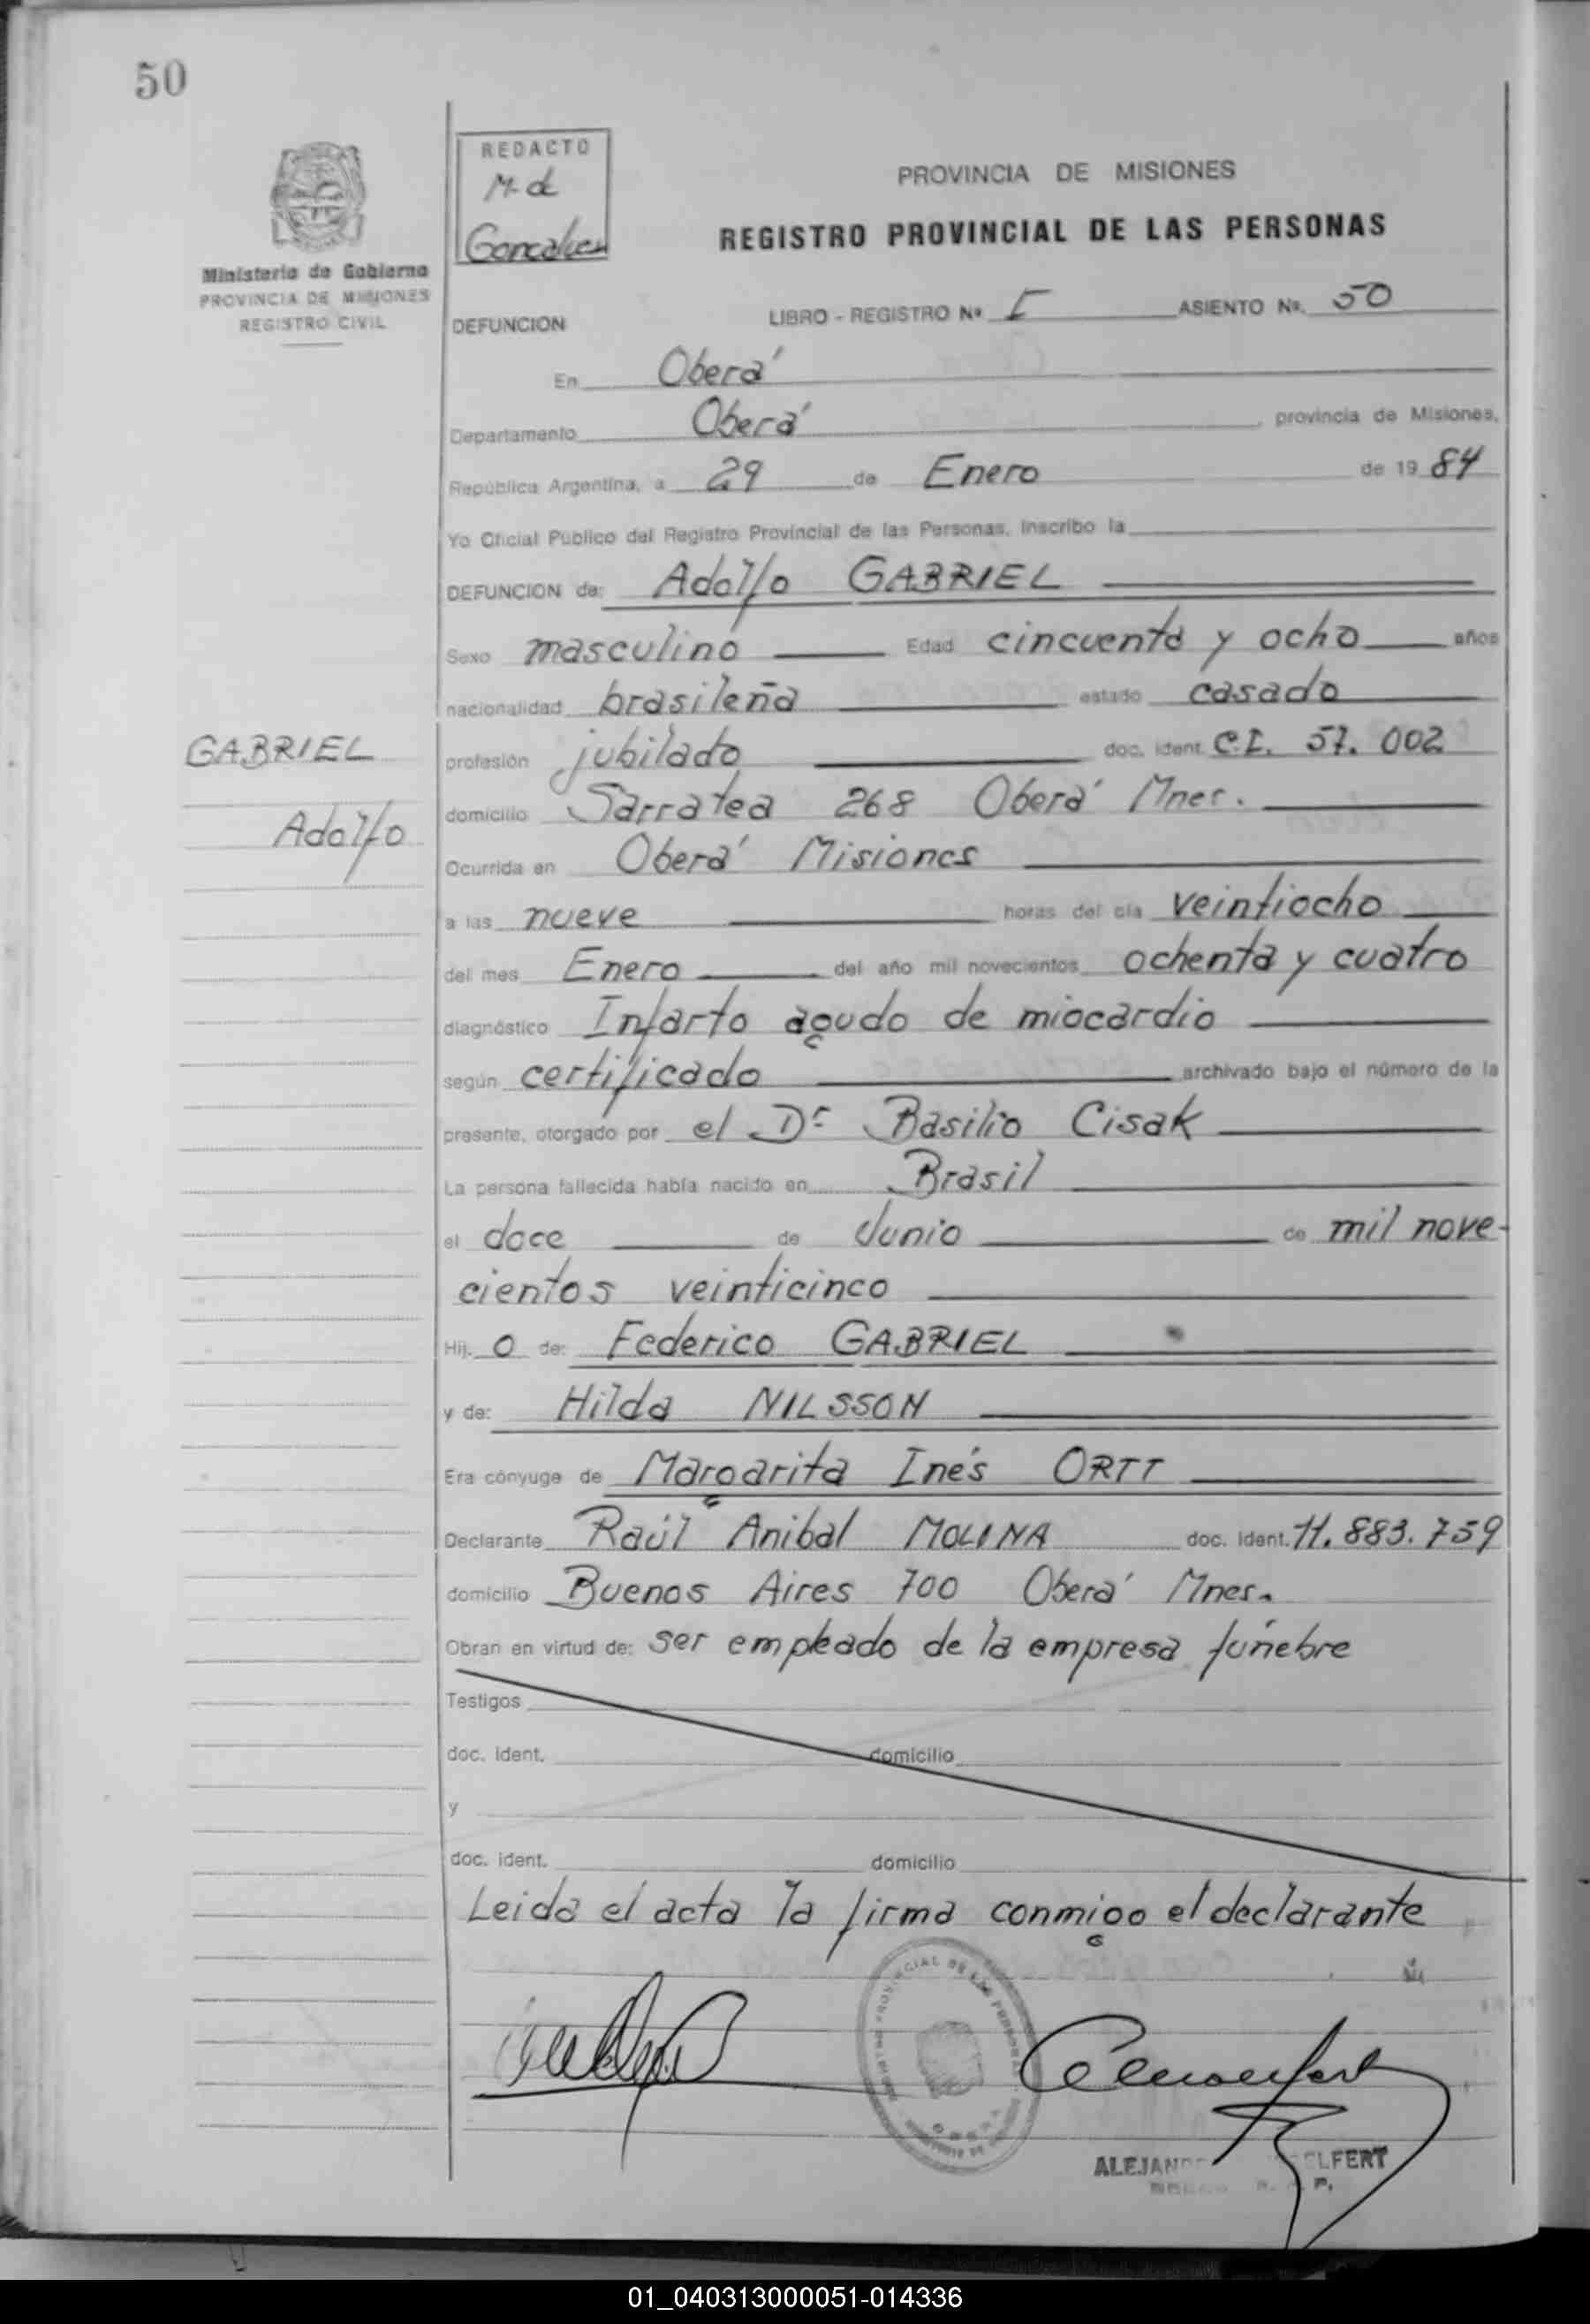 50
REDACTO
M. d
Goncalves
PROVINCIA DE MISIONES
REGISTRO PROVINCIAL DE LAS PERSONAS
Ministerio de Gobierno
PROVINCIA DE MISIONES
REGISTRO CIVIL
DEFUNCION LIBRO - REGISTRO Nº I ASIENTO Nº. 50
En Oberá
Departamento Oberá, provincia de Misiones,
República Argentina, a 29 de Enero de 19 84
Yo Oficial Público del Registro Provincial de las Personas, inscribo la
DEFUNCION de: Adolfo GABRIEL
Sexo masculino Edad cincuenta y ocho años
nacionalidad brasileña estado casado
GABRIEL
Adolfo
profesión jubilado doc. ident. C.I. 57.002
domicilio Sarratea 268 Oberá Mnes.
Ocurrida en Oberá Misiones
a las nueve horas del día veintiocho
del mes Enero del año mil novecientos ochenta y cuatro
diagnóstico Infarto agudo de miocardio
según certificado archivado bajo el número de la
presente, otorgado por el Dr Basilio Cisak
La persona fallecida había nacido en Brasil
el doce de Junio de mil nove-
cientos veinticinco
Hij. o de: Federico GABRIEL
y de: Hilda NILSSON
Era cónyuge de Margarita Inés ORTT
Declarante Raúl Anibal MOLINA doc. ident. 11.883.759
domicilio Buenos Aires 700 Oberá Mnes.
Obran en virtud de: ser empleado de la empresa fúnebre
Testigos
doc. ident. domicilio
y
doc. ident. domicilio
Leida el acta la firma conmigo el declarante
01_040313000051-014336